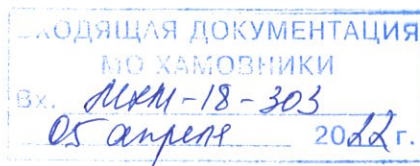 ВХОДЯЩАЯ ДОКУМЕНТАЦИЯ
МО ХАМОВНИКИ
Вх. МХМ-18-303
05 апреля 2022 г.